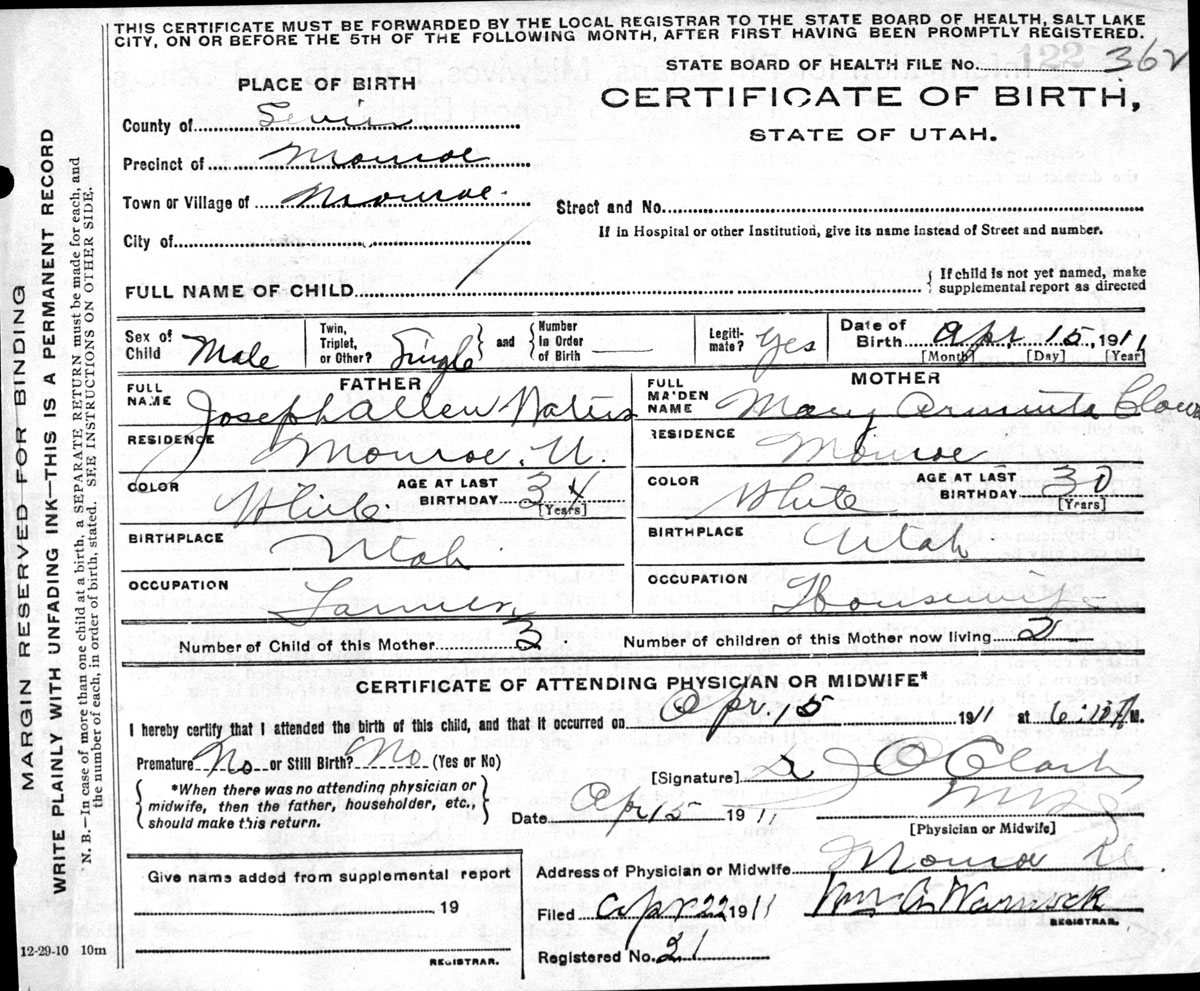 THIS CERTIFICATE MUST BE FORWARDED BY THE LOCAL REGISTRAR TO THE STATE BOARD OF HEALTH, SALT LAKE
CITY, ON OR BEFORE THE 5TH OF THE FOLLOWING MONTH, AFTER FIRST HAVING BEEN PROMPTLY REGISTERED.
STATE BOARD OF HEALTH FILE No. 122 362
PLACE OF BIRTH
CERTIFICATE OF BIRTH,
STATE OF UTAH.
County of Sevier
Precinct of Monroe
Town or Village of Monroe.
Street and No.
City of
If in Hospital or other Institution, give its name instead of Street and number.
FULL NAME OF CHILD
{ If child is not yet named, make
supplemental report as directed
Sex of Child Male
Twin, Triplet, or Other? Single } and { Number in Order of Birth —
Legiti-mate? Yes
Date of Birth Apr. 15, 1911
[Month] [Day] [Year]
FATHER
MOTHER
FULL NAME Joseph Allen Waters
FULL MAIDEN NAME Mary Arminta
RESIDENCE Monroe. U.
RESIDENCE Monroe
COLOR White. AGE AT LAST BIRTHDAY 34 [Years]
COLOR White AGE AT LAST BIRTHDAY 30 [Years]
BIRTHPLACE Utah
BIRTHPLACE Utah
OCCUPATION Farmer
OCCUPATION Housewife
Number of Child of this Mother 3
Number of children of this Mother now living 2
CERTIFICATE OF ATTENDING PHYSICIAN OR MIDWIFE*
I hereby certify that I attended the birth of this child, and that it occurred on Apr. 15 1911 at 6:10 A M.
Premature No or Still Birth? No (Yes or No)
[Signature] J O Clark
{ *When there was no attending physician or
midwife, then the father, householder, etc.,
should make this return. }
Date Apr 15 1911
[Physician or Midwife]
Give name added from supplemental report
19
REGISTRAR.
Address of Physician or Midwife Monroe
Filed Apr 22 1911 Wm G Warnock
REGISTRAR.
Registered No. 21
12-29-10 10m
MARGIN RESERVED FOR BINDING
WRITE PLAINLY WITH UNFADING INK—THIS IS A PERMANENT RECORD
N. B.—In case of more than one child at a birth, a SEPARATE RETURN must be made for each, and
the number of each, in order of birth, stated. SEE INSTRUCTIONS ON OTHER SIDE.